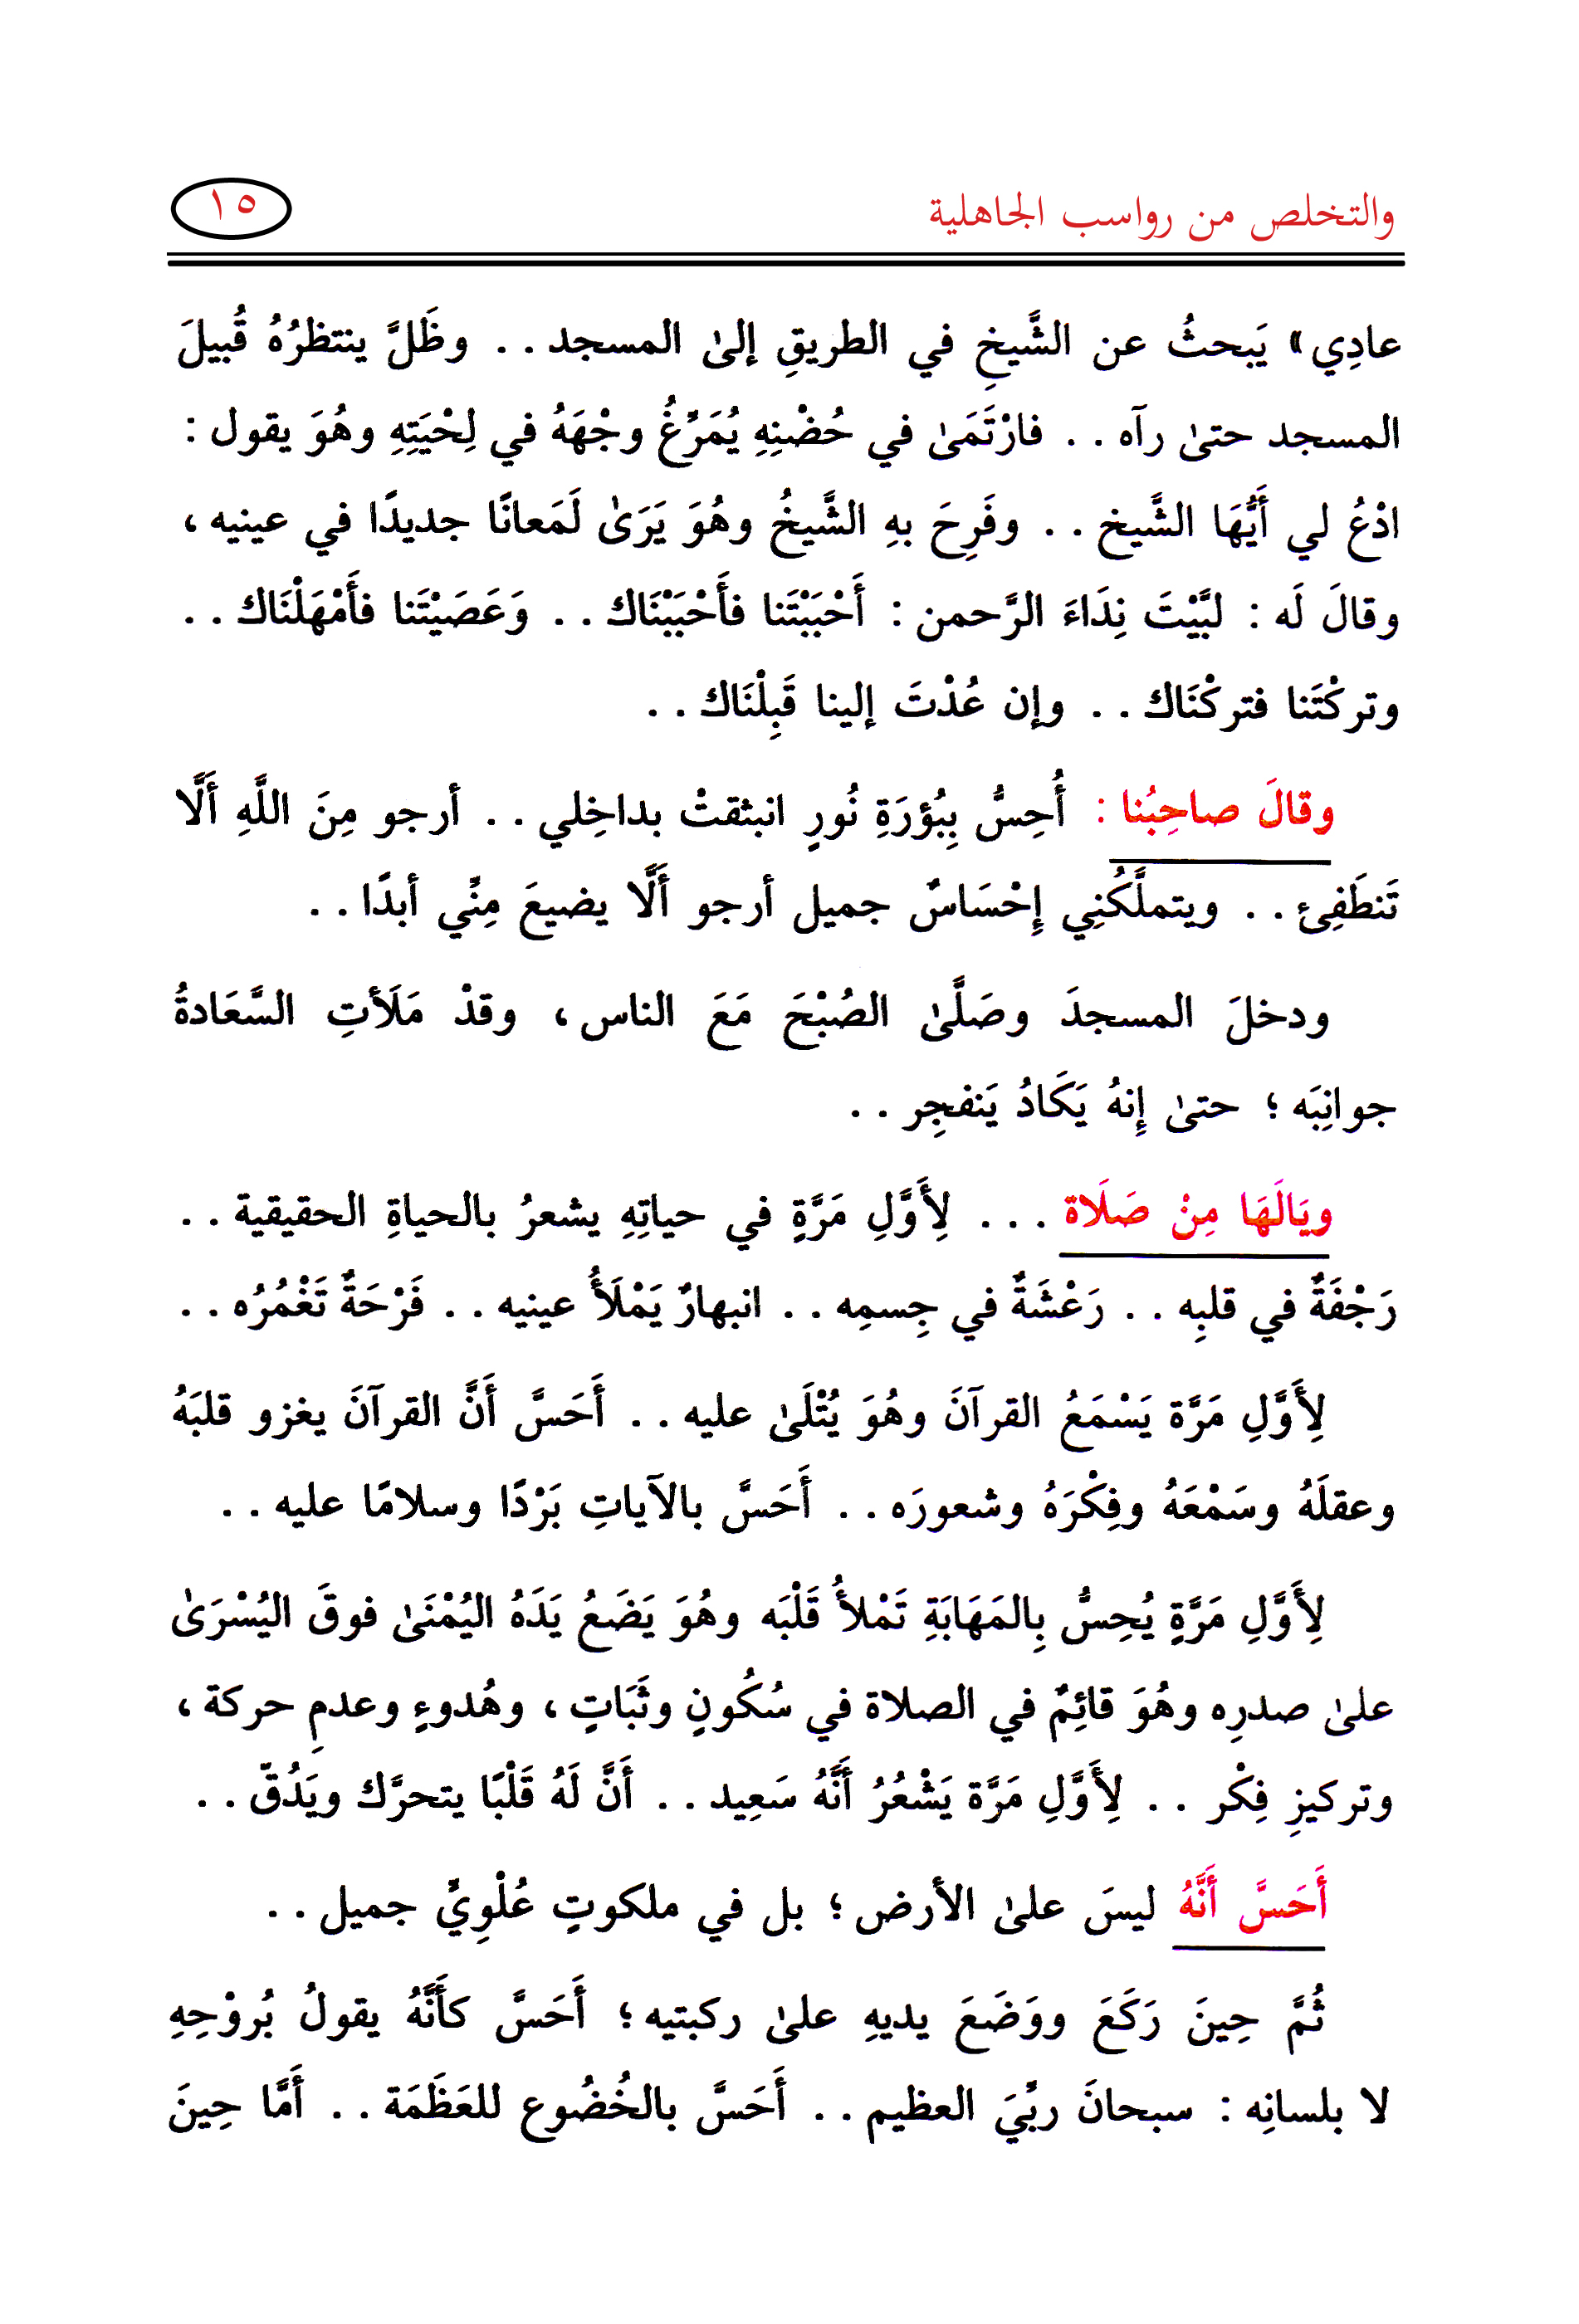 والتخلص من رواسب الجاهلية
١٥
عادِي» يَبحثُ عن الشَّيخِ في الطريقِ إلىٰ المسجد . . وظَلَّ ينتظرُهُ قُبيلَ
المسجد حتىٰ رآه . . فارْتَمَىٰ في حُضْنِهِ يُمَرِّغُ وجْهَهُ في لِحْيَتِهِ وهُوَ يقول :
ادْعُ لي أَيُّهَا الشَّيخ . . وفَرِحَ بهِ الشَّيخُ وهُوَ يَرَىٰ لَمَعانًا جديدًا في عينيه ،
وقالَ لَه : لبَّيْتَ نِدَاءَ الرَّحمن : أَحْبَبْتَنا فأَحْبَبْنَاك . . وَعَصَيْتَنا فأَمْهَلْنَاك . .
وتركْتَنا فتركْنَاك . . وإن عُدْتَ إلينا قَبِلْنَاك . .
وقالَ صاحِبُنا : أُحِسُّ بِبُؤرَةِ نُورٍ انبثقتْ بداخِلي . . أرجو مِنَ اللَّهِ أَلَّا
تَنطَفِئ . . ويتملَّكُنِي إِحْسَاسٌ جميل أرجو أَلَّا يضيعَ مِنِّي أبدًا . .
ودخلَ المسجدَ وصَلَّىٰ الصُبْحَ مَعَ الناس ، وقدْ مَلَأتِ السَّعَادةُ
جوانِبَه ؛ حتىٰ إِنهُ يَكَادُ يَنفجِر . .
ويَالَهَا مِنْ صَلَاة . . . لِأَوَّلِ مَرَّةٍ في حياتِهِ يشعرُ بالحياةِ الحقيقية . .
رَجْفَةٌ في قلبِه . . رَعْشَةٌ في جِسمِه . . انبهارٌ يَمْلَأُ عينيه . . فَرْحَةٌ تَغْمُرُه . .
لِأَوَّلِ مَرَّة يَسْمَعُ القرآنَ وهُوَ يُتْلَىٰ عليه . . أَحَسَّ أَنَّ القرآنَ يغزو قلبَهُ
وعقلَهُ وسَمْعَهُ وفِكْرَهُ وشعورَه . . أَحَسَّ بالآياتِ بَرْدًا وسلامًا عليه . .
لِأَوَّلِ مَرَّةٍ يُحِسُّ بِالمَهَابَةِ تَمْلأُ قَلْبَه وهُوَ يَضَعُ يَدَهُ اليُمْنَىٰ فوقَ اليُسْرَىٰ
علىٰ صدرِه وهُوَ قائِمٌ في الصلاة في سُكُونٍ وثَبَاتٍ ، وهُدوءٍ وعدمِ حركة ،
وتركيزِ فِكْر . . لِأَوَّلِ مَرَّة يَشْعُرُ أَنَّهُ سَعِيد . . أَنَّ لَهُ قَلْبًا يتحرَّك ويَدُقّ . .
أَحَسَّ أَنَّهُ ليسَ علىٰ الأرض ؛ بل في ملكوتٍ عُلْوِيٍّ جميل . .
ثُمَّ حِينَ رَكَعَ ووَضَعَ يديهِ علىٰ ركبتيه ؛ أَحَسَّ كأَنَّهُ يقولُ بُروْحِهِ
لا بلسانِه : سبحانَ ربِّيَ العظيم . . أَحَسَّ بالخُضُوع للعَظَمَة . . أَمَّا حِينَ